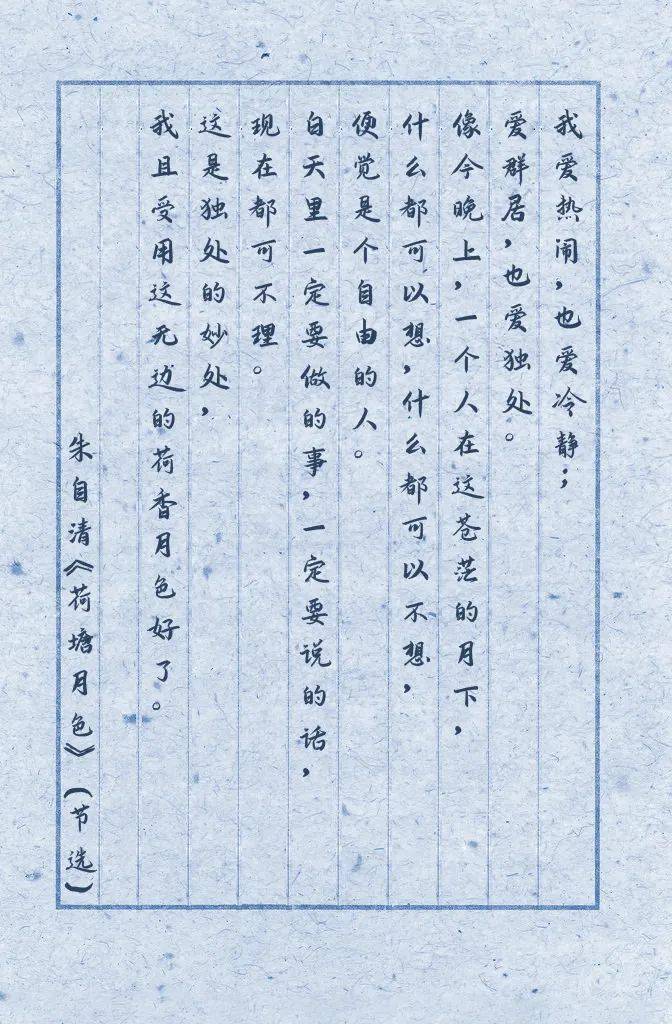 我爱热闹，也爱冷静；
爱群居，也爱独处。
像今晚上，一个人在这苍茫的月下，
什么都可以想，什么都可以不想，
便觉是个自由的人。
白天里一定要做的事，一定要说的话，
现在都可不理。
这是独处的妙处，
我且受用这无边的荷香月色好了。
朱自清《荷塘月色》（节选）